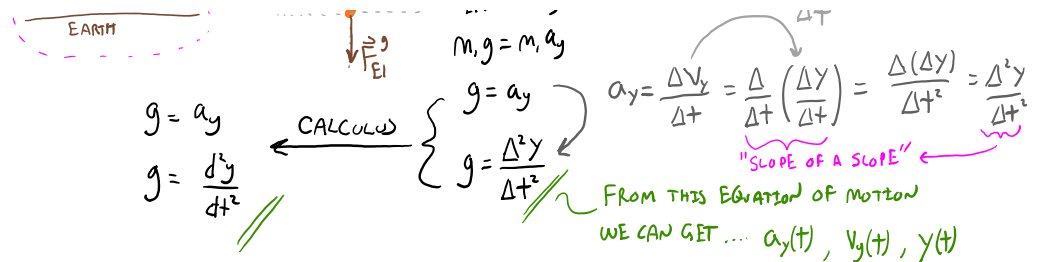 EARTH
F⃗ᵍ_E1
m₁g = m₁a_y
g = a_y
g = Δ²Y/Δt²
CALCULUS
g = a_y
g = d²y/dt²
ΔT
a_y = ΔV_y/Δt = Δ/Δt (ΔY/Δt) = Δ(ΔY)/Δt² = Δ²Y/Δt²
"SLOPE OF A SLOPE"
FROM THIS EQUATION OF MOTION
WE CAN GET .... a_y(t) , V_y(t) , Y(t)